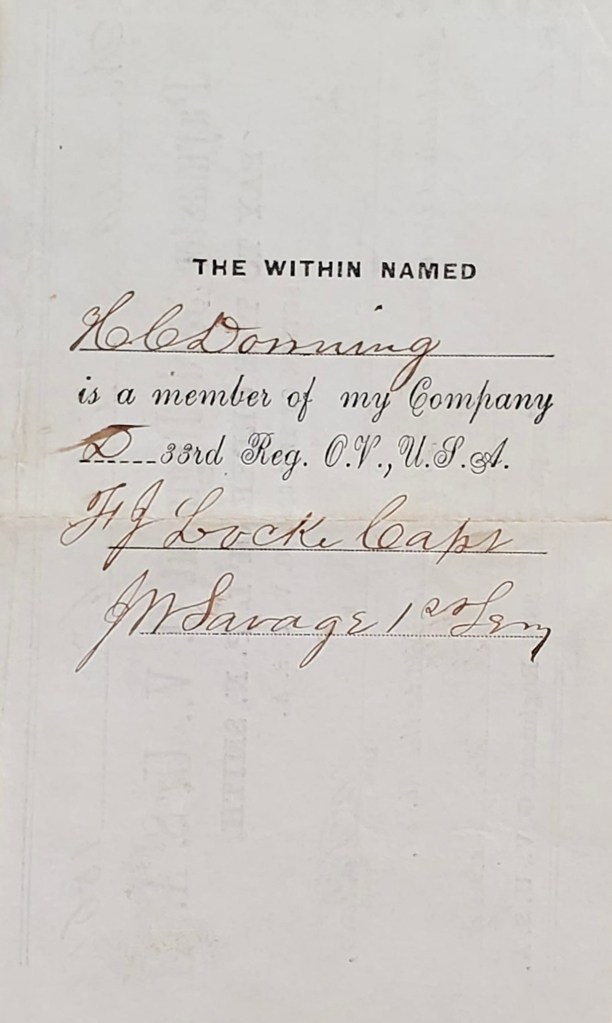 THE WITHIN NAMED
H C Donning
is a member of my Company
D 33rd Reg. O.V., U.S.A.
F J Locke Capt
J W Savage 1st Serg